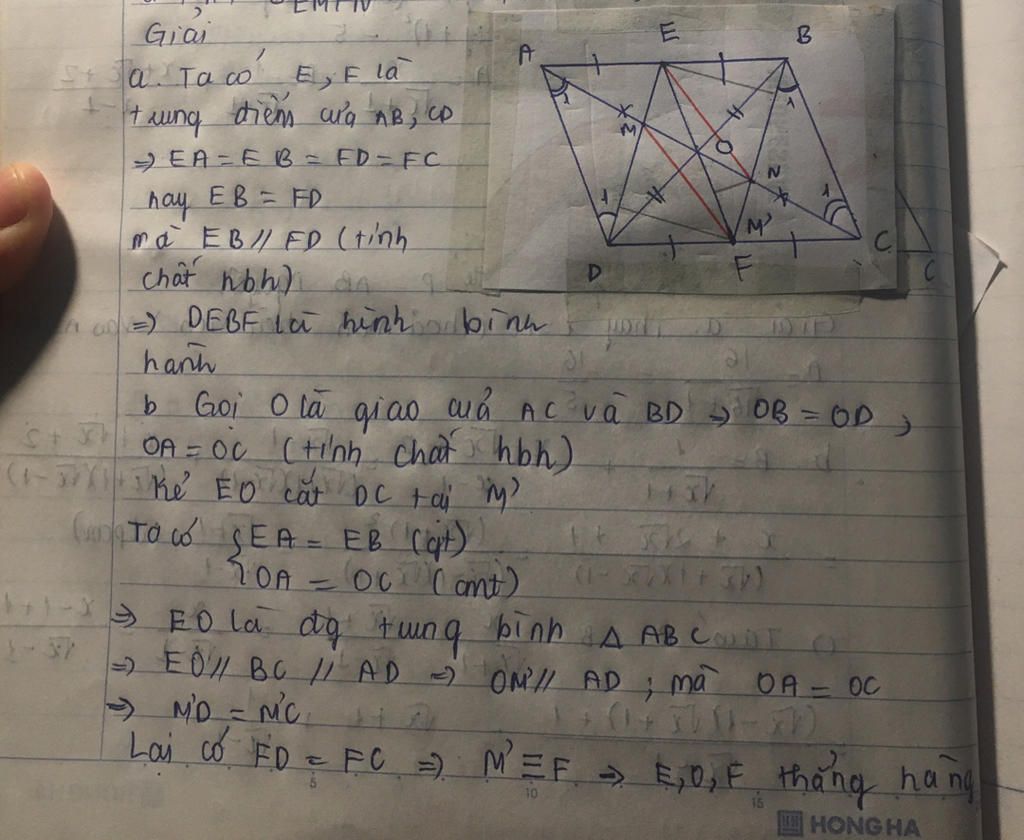 EMFN
Giải
a. Ta có E, F là
trung điểm của AB, CD
⇒ EA = EB = FD = FC
hay EB = FD
mà EB // FD (tính
chất hbh)
⇒ DEBF là hình bình
hành
A E B
1 1
M O N
1 1
D F M' C
C
b Gọi O là giao cuả AC và BD ⇒ OB = OD ,
OA = OC (tính chất hbh)
Kẻ EO cắt DC tại M'
Ta có { EA = EB (gt)
OA = OC (cmt)
⇒ EO là đg trung bình △ ABC
⇒ EO // BC // AD ⇒ OM' // AD ; mà OA = OC
⇒ M'D = M'C
Lại có FD = FC ⇒ M' ≡ F ⇒ E, O, F thẳng hàng
5 10 15
HONG HA